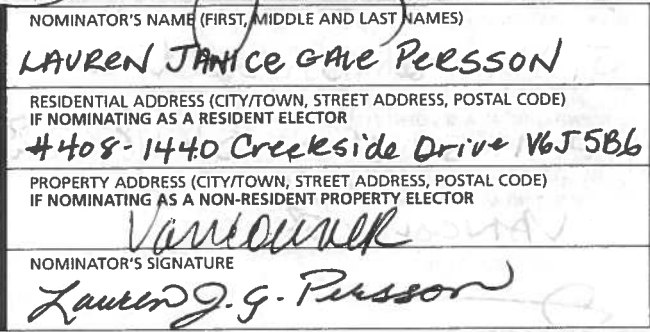 NOMINATOR'S NAME (FIRST, MIDDLE AND LAST NAMES)
LAUREN JANICE GALE PERSSON
RESIDENTIAL ADDRESS (CITY/TOWN, STREET ADDRESS, POSTAL CODE)
IF NOMINATING AS A RESIDENT ELECTOR
#408-1440 Creekside Drive V6J5B6
PROPERTY ADDRESS (CITY/TOWN, STREET ADDRESS, POSTAL CODE)
IF NOMINATING AS A NON-RESIDENT PROPERTY ELECTOR
Vancouver
NOMINATOR'S SIGNATURE
Lauren J.G. Persson